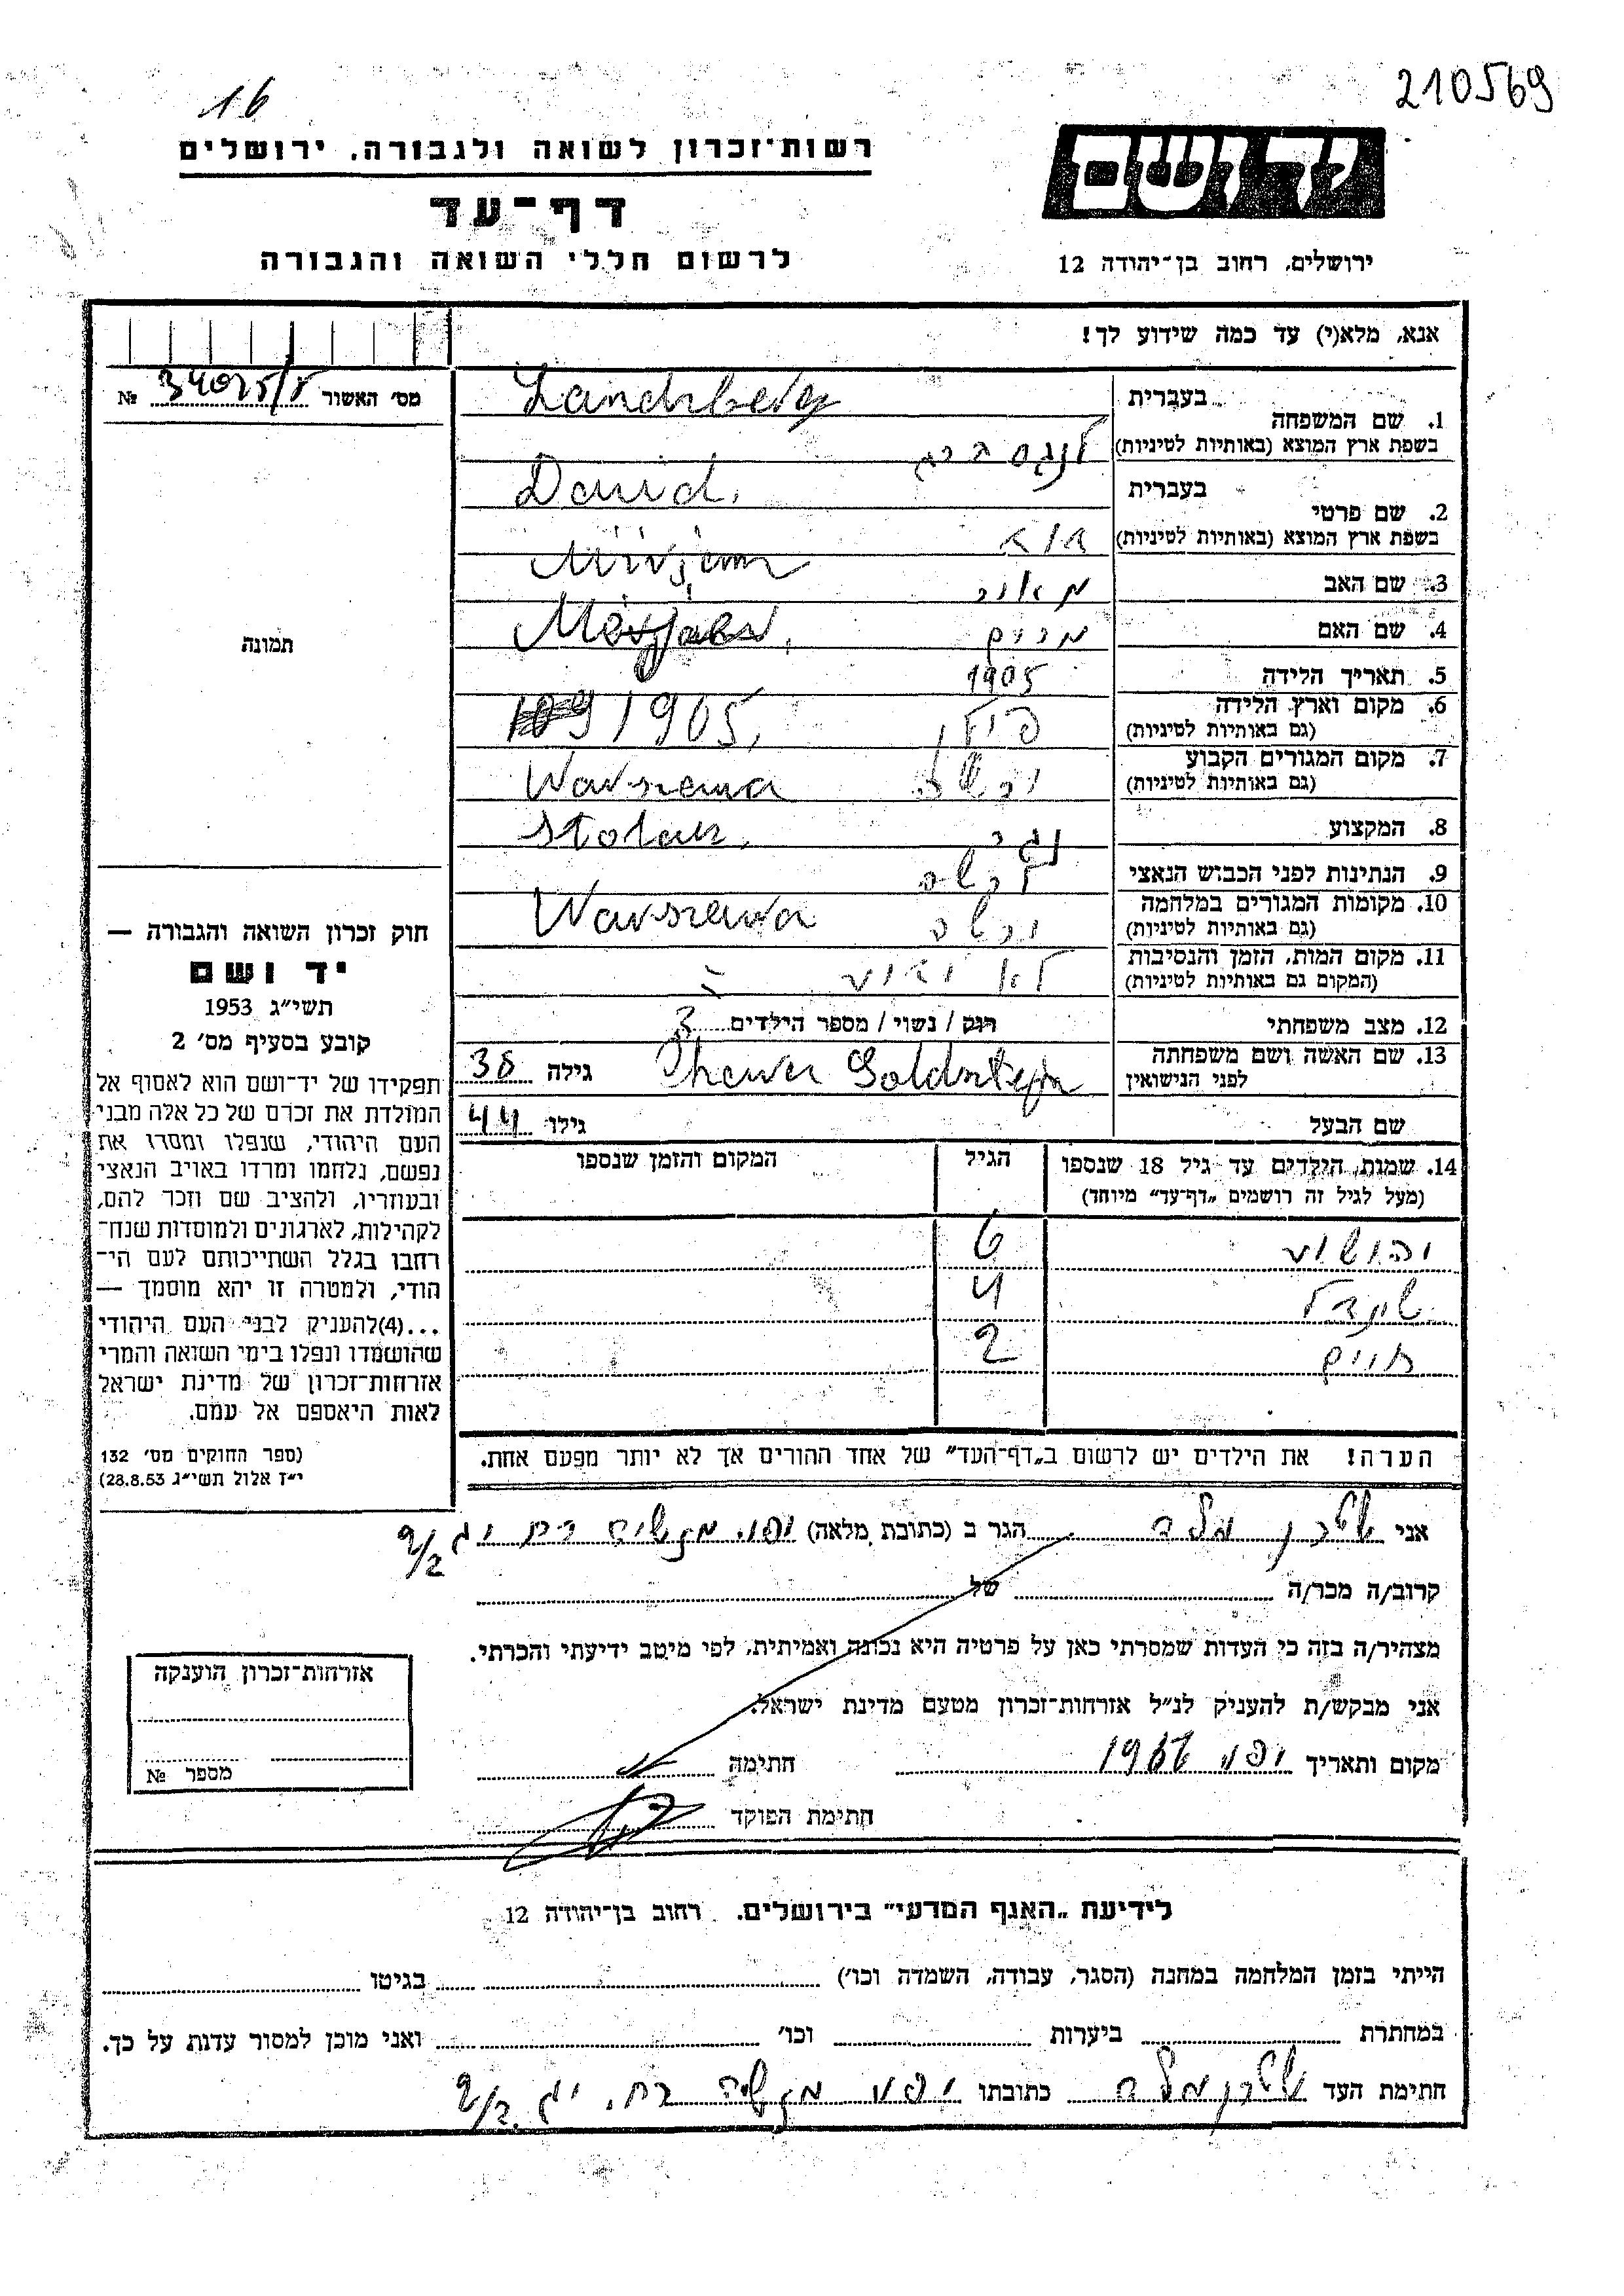 210569
16
רשות־זכרון לשואה ולגבורה, ירושלים
יד ושם
דף־עד
לרשום חללי השואה והגבורה
ירושלים, רחוב בן־יהודה 12
אנא, מלא(י) עד כמה שידוע לך!
מס' האשור №
1. שם המשפחה
בעברית
Landsberg
בשפת ארץ המוצא (באותיות לטיניות)
לנגסברג
2. שם פרטי
בעברית
David,
בשפת ארץ המוצא (באותיות לטיניות)
דוד
3. שם האב מאיר
4. שם האם מרים
5. תאריך הלידה 1905
6. מקום וארץ הלידה
(גם באותיות לטיניות)
פולין 1905,
7. מקום המגורים הקבוע
(גם באותיות לטיניות)
ורשה Warszawa
8. המקצוע נגר Stolarz,
9. הנתינות לפני הכבוש הנאצי
10. מקומות המגורים במלחמה
(גם באותיות לטיניות)
ורשה Warszawa
11. מקום המות, הזמן והנסיבות
(המקום גם באותיות לטיניות)
לא ידוע
12. מצב משפחתי רוק / נשוי / מספר הילדים 3
13. שם האשה ושם משפחתה
לפני הנישואין
Goldsztejn גילה 38
שם הבעל גילו 44
14. שמות, הילדים עד גיל 18 שנספו
(מעל לגיל זה רושמים „דף־עד" מיוחד)
הגיל
המקום והזמן שנספו
יהושוע 6
שינדל 4
חיים 2
הערה! את הילדים יש לרשום ב„דף־העד" של אחד ההורים אך לא יותר מפעם אחת.
תמונה
חוק זכרון השואה והגבורה —
יד ושם
תשי"ג 1953
קובע בסעיף מס' 2
תפקידו של יד־ושם הוא לאסוף אל
המולדת את זכרם של כל אלה מבני
העם היהודי, שנפלו ומסרו את
נפשם, נלחמו ומרדו באויב הנאצי
ובעוזריו, ולהציב שם וזכר להם,
לקהילות, לארגונים ולמוסדות שנח־
רחבו בגלל השתייכותם לעם הי־
הודי, ולמטרה זו יהא מוסמך —
...(4)להעניק לבני העם היהודי
שהושמדו ונפלו בימי השואה והמרי
אזרחות־זכרון של מדינת ישראל
לאות היאספם אל עמם.
(ספר החוקים מס' 132
י"ז אלול תשי"ג 28.8.53)
אני הגר ב (כתובת מלאה) יפו 9/2
קרוב/ה מכר/ה של
מצהיר/ה בזה כי העדות שמסרתי כאן על פרטיה היא נכונה ואמיתית, לפי מיטב ידיעתי והכרתי.
אני מבקש/ת להעניק לנ"ל אזרחות־זכרון מטעם מדינת ישראל.
מקום ותאריך יפו חתימה
חתימת הפוקד
אזרחות־זכרון הוענקה
מספר №
לידיעת „האגף המדעי" בירושלים. רחוב בן־יהודה 12
הייתי בזמן המלחמה במחנה (הסגר, עבודה, השמדה וכו') בגיטו
במחתרת ביערות וכו' ואני מוכן למסור עדות על כך.
חתימת העד כתובתו יפו 9/2